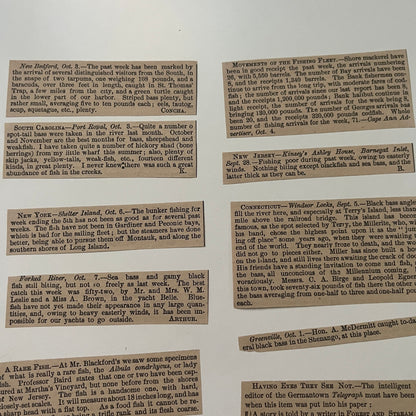 New Bedford, Oct. 3.—The past week has been marked by
the arrival of several distinguished visitors from the South, in
the shape of two tarpons, one weighing 108 pounds, and a
baracuda, over three feet in length, caught in St. Thomas'
Trap, a few miles from the city, and a green turtle caught
in the lower part of our harbor. Striped bass plenty, but
rather small, averaging five to ten pounds each; eels, tautog,
scup, squeteague, etc., plenty. CONCHA.
SOUTH CAROLINA—Port Royal, Oct. 5.—Quite a number o
spot-tail bass were taken in the river last month. October
and November are the best months for bass, sheepshead and
weakfish. I have taken quite a number of hickory shad (bone
herrings) from my little wharf this summer; also, plenty of
skip jacks, yellow-tails, weak-fish, etc., fourteen different
kinds, in great plenty. I never knew there was such a great
abundance of fish in the creeks. K.
NEW YORK—Shelter Island, Oct. 6.—The bunker fishing for
week ending the 5th has not been as good as for several past
weeks. The fish have not been in Gardiner and Peconic bays,
which is bad for the sailing fleet; but the steamers have done
better, being able to pursue them off Montauk, and along the
southern shores of Long Island.
Forked River, Oct. 7.—Sea bass and gamy black
fish still biting, but not so freely as last week. The best
catch this week was fifty-two, by Mr. and Mrs. W. M.
Leslie and a Miss A. Brown, in the yacht Belle. Blue-
fish have not yet made their appearance in any large quan-
tities, and, owing to heavy easterly winds, it has been im-
possible for our yachts to go outside. ARTHUR.
A RARE FISH.—At Mr. Blackford's we saw some specimens
of what is really a rare fish, the Albula conorhynchus, or lady
fish. Professor Baird states that one or two have been cap-
tured at Martha's Vineyard, but none before from the shores
of New Jersey. The fish is a handsome one, with hard,
closely-set scales. will measure about 18 inches long, and has
shaped with a flat top. As a food fish it cannot be
with a triple rank, and its flesh coarse.
MOVEMENTS OF THE FISHING FLEET.—Shore mackerel have
been in good receipt the past week, the arrivals numbering
26, with 5,550 barrels. The number of Bay arrivals have been
8, and the receipts 1,240 barrels. The Bank fishermen con-
tinue to arrive from the long trip, with moderate fares of cod-
fish; the number of arrivals since our last report has been
and the receipts 1,200,000 pounds. Bank halibut continue in
light receipt, the number of arrivals for the week being
bringing 135,000 pounds. The number of Georges arrivals has
been 20, and the receipts 320,000 pounds codfish.
number of fishing arrivals for the week, 71.—Cape Ann Ad-
vertiser, Oct. 4.
NEW JERSEY—Kinsey's Ashley House, Barnegat Inlet,
Sept. 28.—Fishing poor during past week, owing to easterly
winds. Nothing biting except blackfish and sea bass, and the
latter thick as they can be. B.
CONNECTICUT—Windsor Locks, Sept. 5.—Black bass anglers
fill the river here, and especially at Terry's Island, less than
mile above the railroad bridge. This island has been
famous, as the spot selected by Terry, the Millerite, who, with
his band, chose the highest point upon it as the "jump-
ing off place" some years ago, when they were awaiting the
end of the world. They nearly froze to death, and the
did not go to pieces either. Miller has since built a house
on the island, and still lives there awaiting the crack of doom.
His friends have a standing invitation to come and fish,
the bass, all unconscious of the Millennium coming,
voraciously. Messrs. C. A. Birge and Leopold Eigen
this town, took seventy-six pounds of fish there the other
the bass averaging from one-half to three and one-half pounds
each.
Greenville, Oct. 1.—Hon. A. McDermitt caught to-day
eral black bass in the Shenango, at this place.
HAVING EYES THEY SEE NOT.—The intelligent
editor of the Germantown Telegraph must have been
when this item was put into his paper:
A story is told by a writer in Forbes